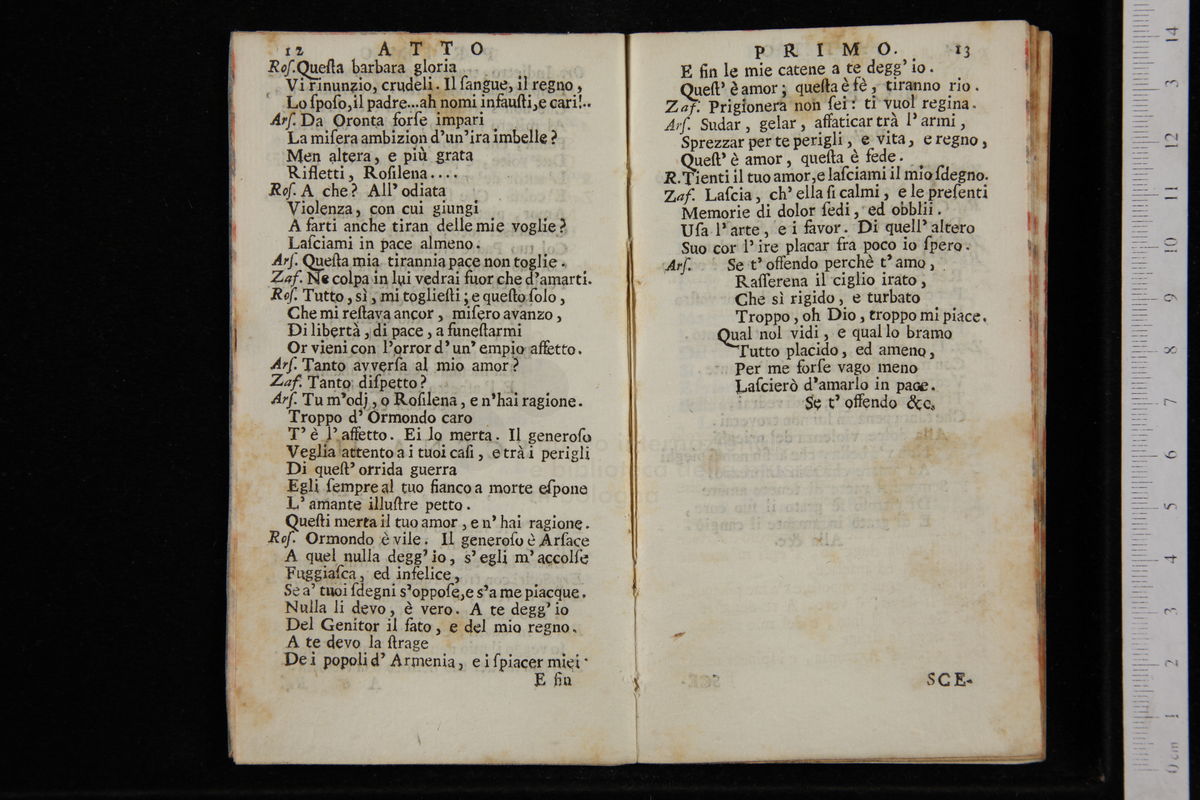 12 ATTO
Roſ. Queſta barbara gloria
Vi rinunzio, crudeli. Il ſangue, il regno,
Lo ſpoſo, il padre...ah nomi infauſti, e cari!..
Arſ. Da Oronta forſe impari
La miſera ambizion d'un'ira imbelle?
Men altera, e più grata
Rifletti, Roſilena....
Roſ. A che? All' odiata
Violenza, con cui giungi
A farti anche tiran delle mie voglie?
Laſciami in pace almeno.
Arſ. Queſta mia tirannia pace non toglie.
Zaf. Ne colpa in lui vedrai fuor che d'amarti.
Roſ. Tutto, sì, mi toglieſti; e queſto ſolo,
Che mi reſtava ancor, miſero avanzo,
Di libertà, di pace, a funeſtarmi
Or vieni con l'orror d' un' empio affetto.
Arſ. Tanto avverſa al mio amor?
Zaf. Tanto diſpetto?
Arſ. Tu m'odj, o Roſilena, e n'hai ragione.
Troppo d' Ormondo caro
T' è l' affetto. Ei lo merta. Il generoſo
Veglia attento a i tuoi caſi, e trà i perigli
Di queſt' orrida guerra
Egli ſempre al tuo fianco a morte eſpone
L' amante illuſtre petto.
Queſti merta il tuo amor, e n' hai ragione.
Roſ. Ormondo è vile. Il generoſo è Arſace
A quel nulla degg' io, s' egli m' accolſe
Fuggiaſca, ed infelice,
Se a' tuoi ſdegni s'oppoſe, e s'a me piacque.
Nulla li devo, è vero. A te degg' io
Del Genitor il fato, e del mio regno.
A te devo la ſtrage
De i popoli d' Armenia, e i ſpiacer miei
E ſin
PRIMO. 13
E ſin le mie catene a te degg' io.
Queſt' è amor; queſta è fè, tiranno rio.
Zaf. Prigionera non ſei: ti vuol regina.
Arſ. Sudar, gelar, affaticar trà l' armi,
Sprezzar per te perigli, e vita, e regno,
Queſt' è amor, queſta è fede.
R. Tienti il tuo amor, e laſciami il mio ſdegno.
Zaf. Laſcia, ch' ella ſi calmi, e le preſenti
Memorie di dolor ſedi, ed obblii.
Uſa l' arte, e i favor. Di quell' altero
Suo cor l' ire placar fra poco io ſpero.
Arſ. Se t' offendo perchè t' amo,
Raſſerena il ciglio irato,
Che sì rigido, e turbato
Troppo, oh Dio, troppo mi piace.
Qual nol vidi, e qual lo bramo
Tutto placido, ed ameno,
Per me forſe vago meno
Laſcierò d'amarlo in pace.
Se t' offendo &c.
SCE-
14
13
12
11
10
9
8
7
6
5
4
3
2
1
0 cm